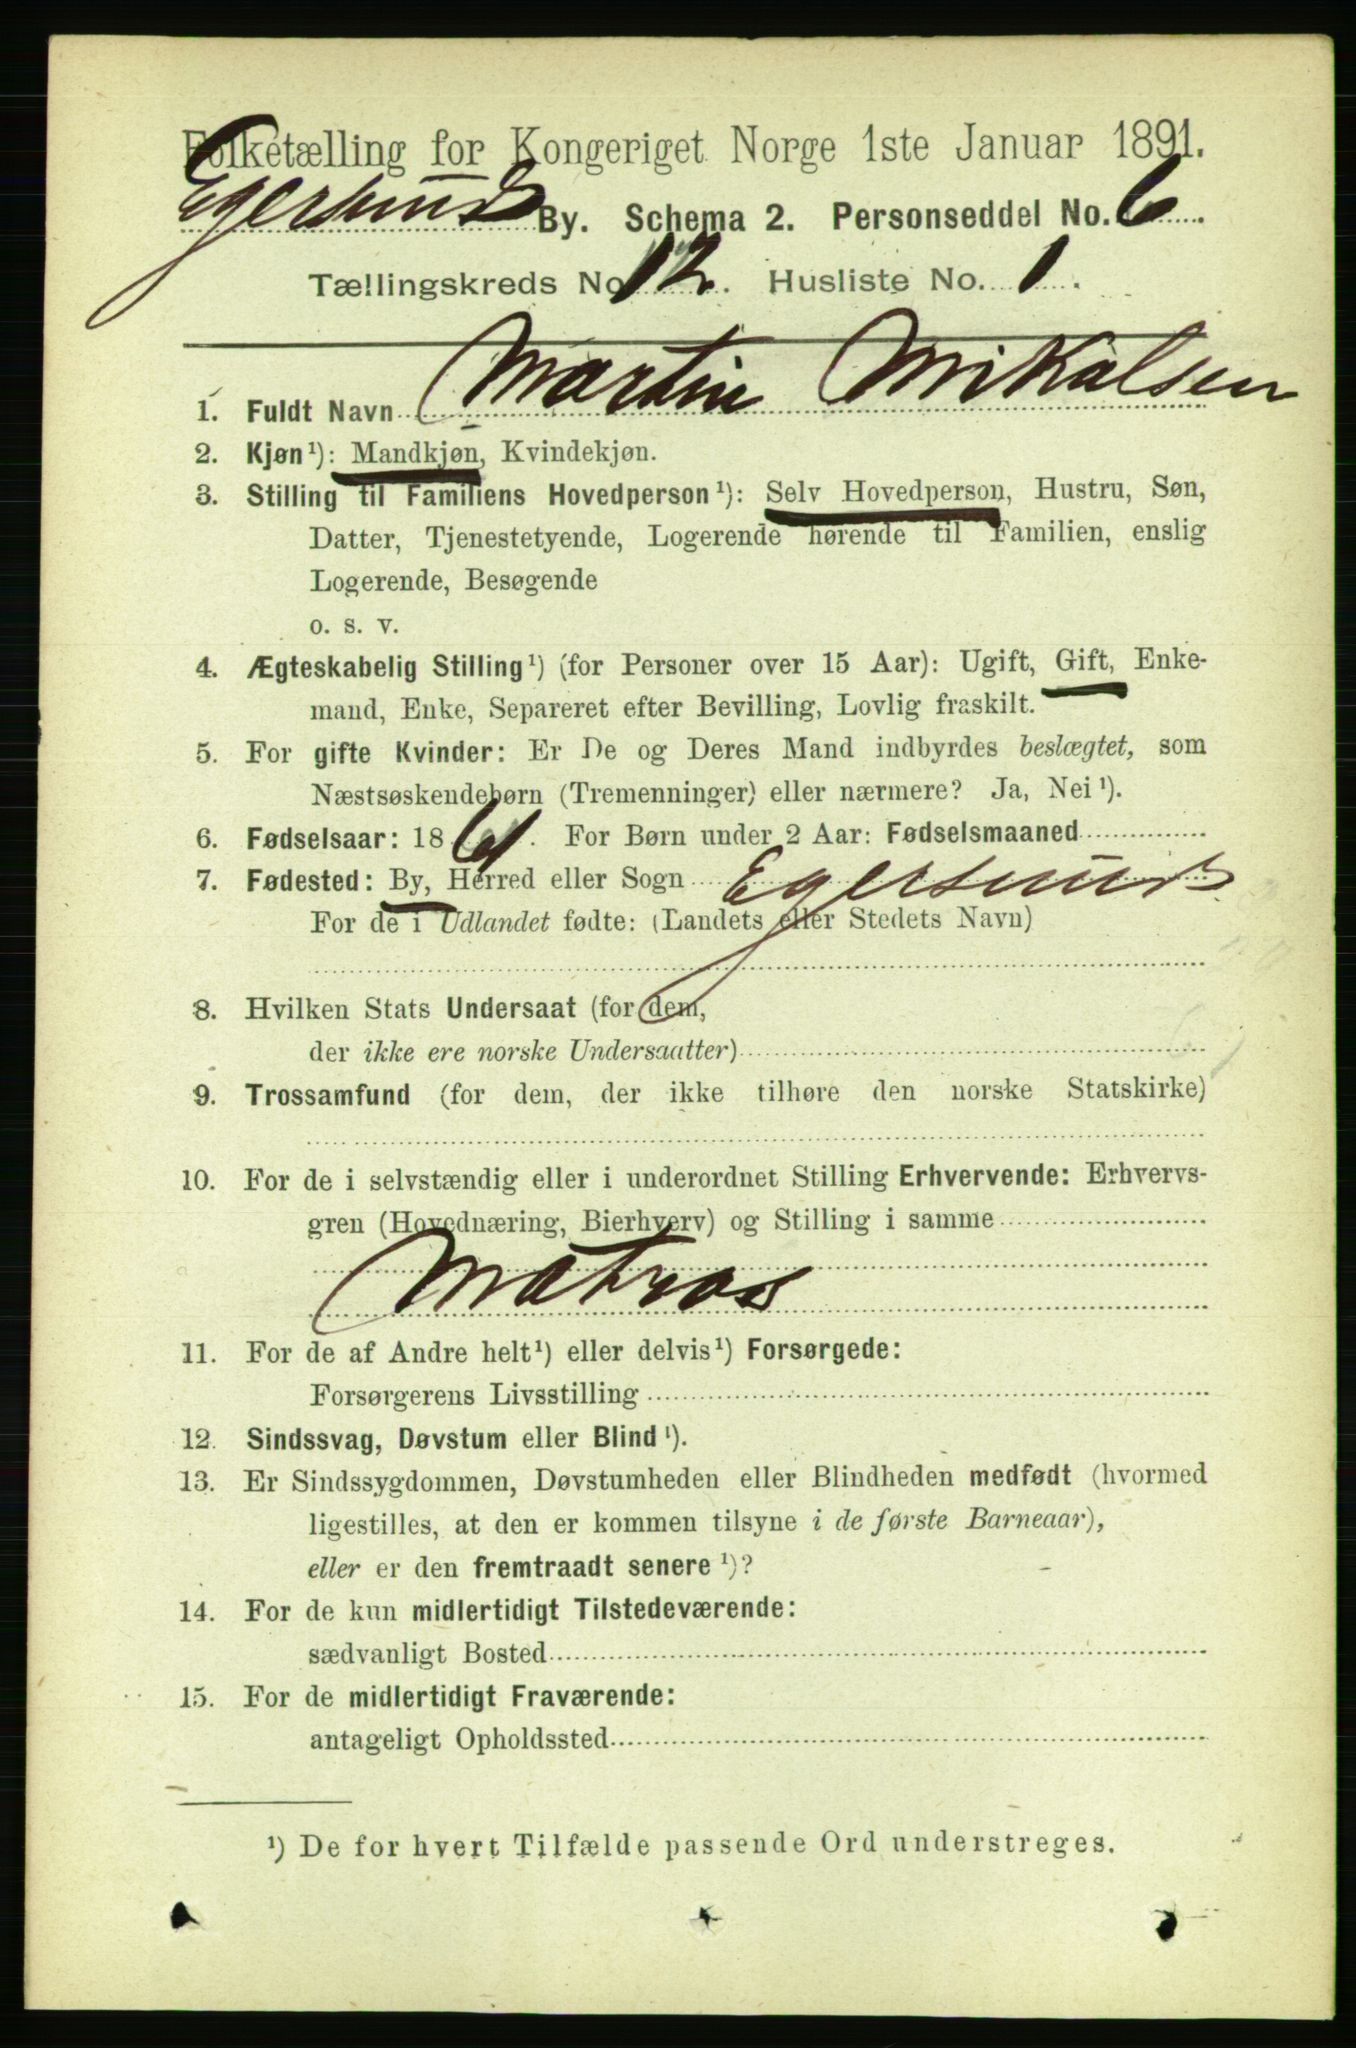 Folketælling for Kongeriget Norge 1ste Januar 1891.
Egersund By. Schema 2. Personseddel No. 6.
Tællingskreds No. 12. Husliste No. 1.
1. Fuldt Navn Martin Mikalsen
2. Kjøn¹): Mandkjøn, Kvindekjøn.
3. Stilling til Familiens Hovedperson¹): Selv Hovedperson, Hustru, Søn,
Datter, Tjenestetyende, Logerende hørende til Familien, enslig
Logerende, Besøgende
o. s. v.
4. Ægteskabelig Stilling¹) (for Personer over 15 Aar): Ugift, Gift, Enke-
mand, Enke, Separeret efter Bevilling, Lovlig fraskilt.
5. For gifte Kvinder: Er De og Deres Mand indbyrdes beslægtet, som
Næstsøskendebørn (Tremenninger) eller nærmere? Ja, Nei¹).
6. Fødselsaar: 1861. For Børn under 2 Aar: Fødselsmaaned
7. Fødested: By, Herred eller Sogn Egersund
For de i Udlandet fødte: (Landets eller Stedets Navn)
8. Hvilken Stats Undersaat (for dem,
der ikke ere norske Undersaatter)
9. Trossamfund (for dem, der ikke tilhøre den norske Statskirke)
10. For de i selvstændig eller i underordnet Stilling Erhvervende: Erhvervs-
gren (Hovednæring, Bierhverv) og Stilling i samme
Matros
11. For de af Andre helt¹) eller delvis¹) Forsørgede:
Forsørgerens Livsstilling
12. Sindssvag, Døvstum eller Blind¹).
13. Er Sindssygdommen, Døvstumheden eller Blindheden medfødt (hvormed
ligestilles, at den er kommen tilsyne i de første Barneaar),
eller er den fremtraadt senere¹)?
14. For de kun midlertidigt Tilstedeværende:
sædvanligt Bosted
15. For de midlertidigt Fraværende:
antageligt Opholdssted
¹) De for hvert Tilfælde passende Ord understreges.